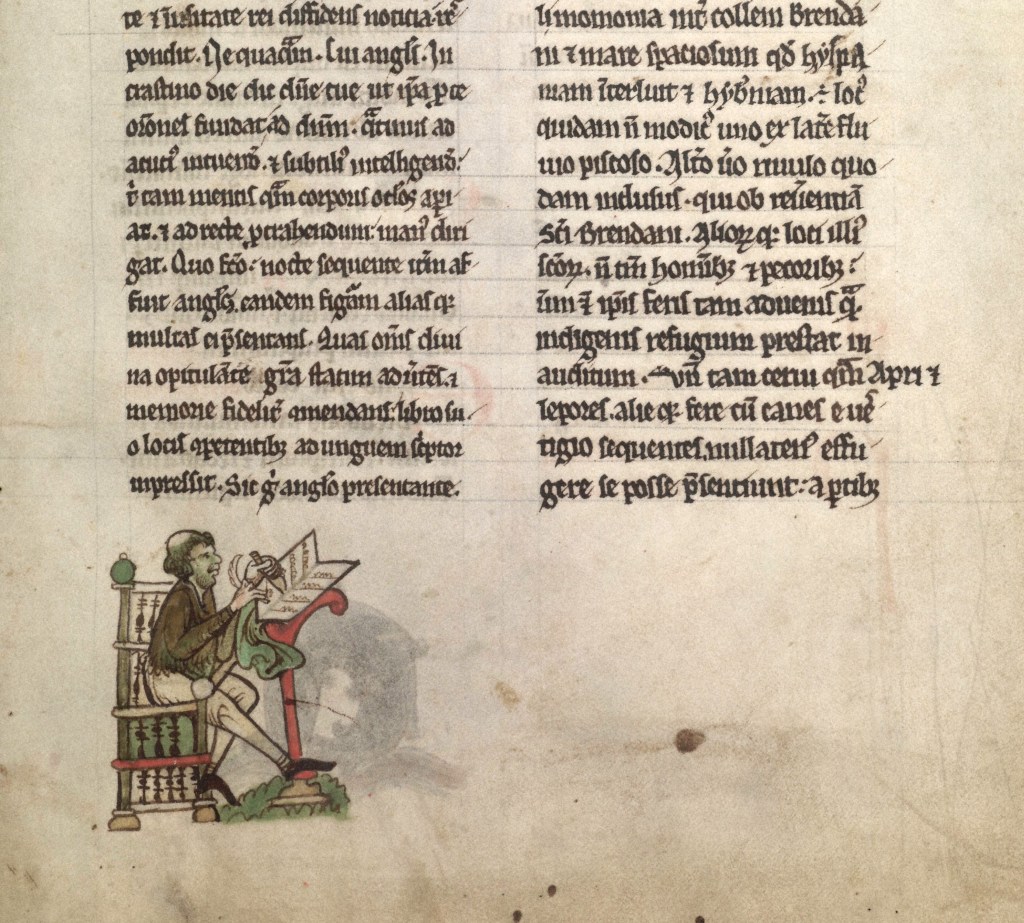 te & iusitate rei diffidens noticia re
pondit. Nequaq̄m. Cui angl's. In
crastino die dic dn̄e tue ut ip̄a p te
or̄ones fundat ad dn̄m. q̄tinus ad
acuti' intuend'. & subtili' intelligend':
t' tam mentis q̄m corporis oc'los api
at. & ad recte ptrahendum: man' diri
gat. Quo fc̄o: nocte sequente it̄m af
fuit angl's. eandem figām alias q;
multas ei p̄sentans. Quas om̄s divi
na opitulāte gr̄a statim aduert̄es. &
memorie fidelit' cmendans: libro su
o locis cpetentib; ad unguem sc̄ptor
inpressit. Sic g' angl'o presentante.
limomonia int' collem Brenda
ni & mare spaciosum qd' hyspa
niam int'luit & hyb'niam. ÷ loc'
quidam n̄ modic' uno ex lat'e flu
uio piscoso. Alt'o u'o riuulo quo
dam inclusus. qui ob reu'entiā
Sc̄i Brendani. Aliorꝝ q; loci illi'
sc̄orꝝ. n̄ tm̄ hominib; & pecorib;:
ūm & ip̄is feris tam aduenis q̄
indigenis refugium prestat in
auditum. Vn̄ tam cerui q̄m Apri &
lepores. alie q; fere cū canes e ues
tigio sequentes. nullaten' effu
gere se posse p̄sentiunt: a ptib;